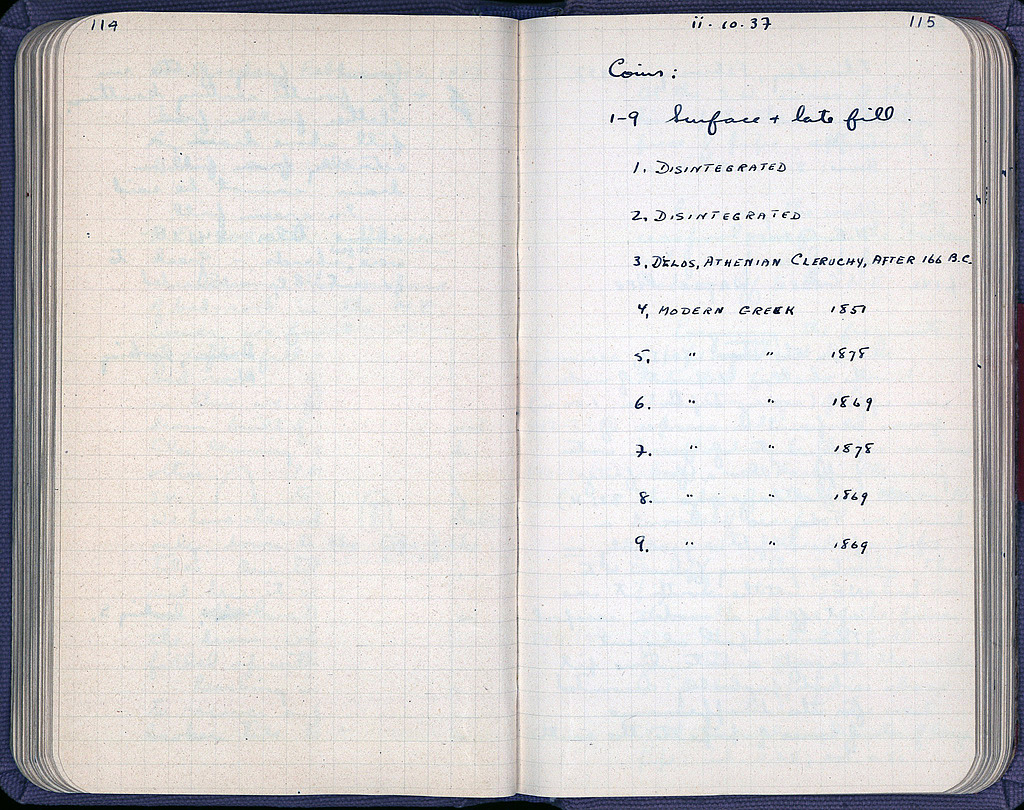 114
ii·10·37 115
Coins:
1-9 Surface + late fill.
1. DISINTEGRATED
2. DISINTEGRATED
3. DELOS, ATHENIAN CLERUCHY, AFTER 166 B.C.
4. MODERN GREEK 1851
5. " " 1878
6. " " 1869
7. " " 1878
8. " " 1869
9. " " 1869